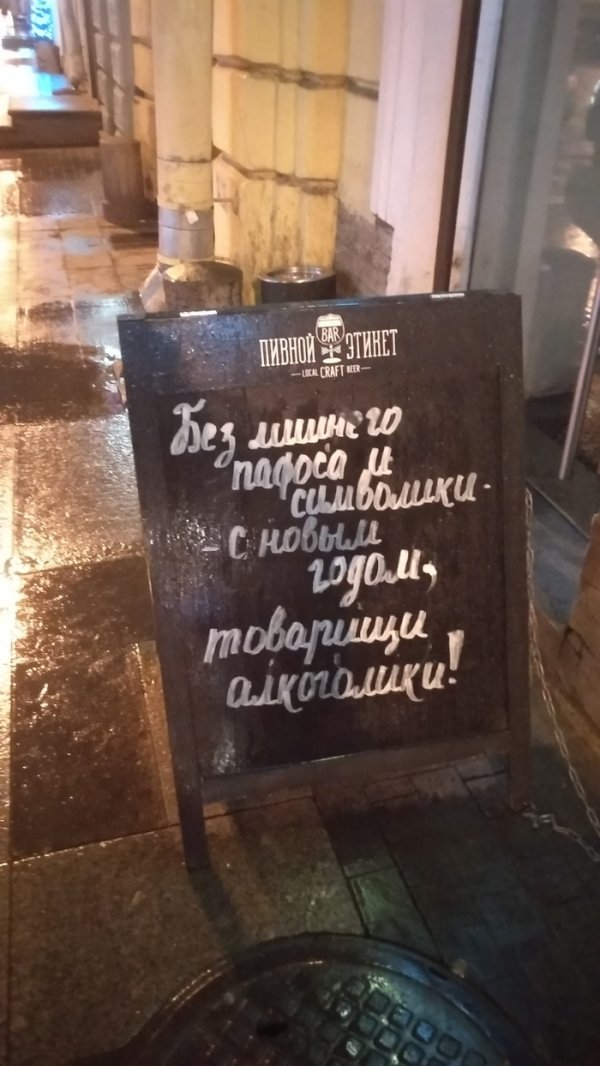 BAR
ПИВНОЙ ЭТИКЕТ
LOCAL CRAFT BEER
Без лишнего
пафоса и
символики -
- с новым
годом,
товарищи
алкоголики!